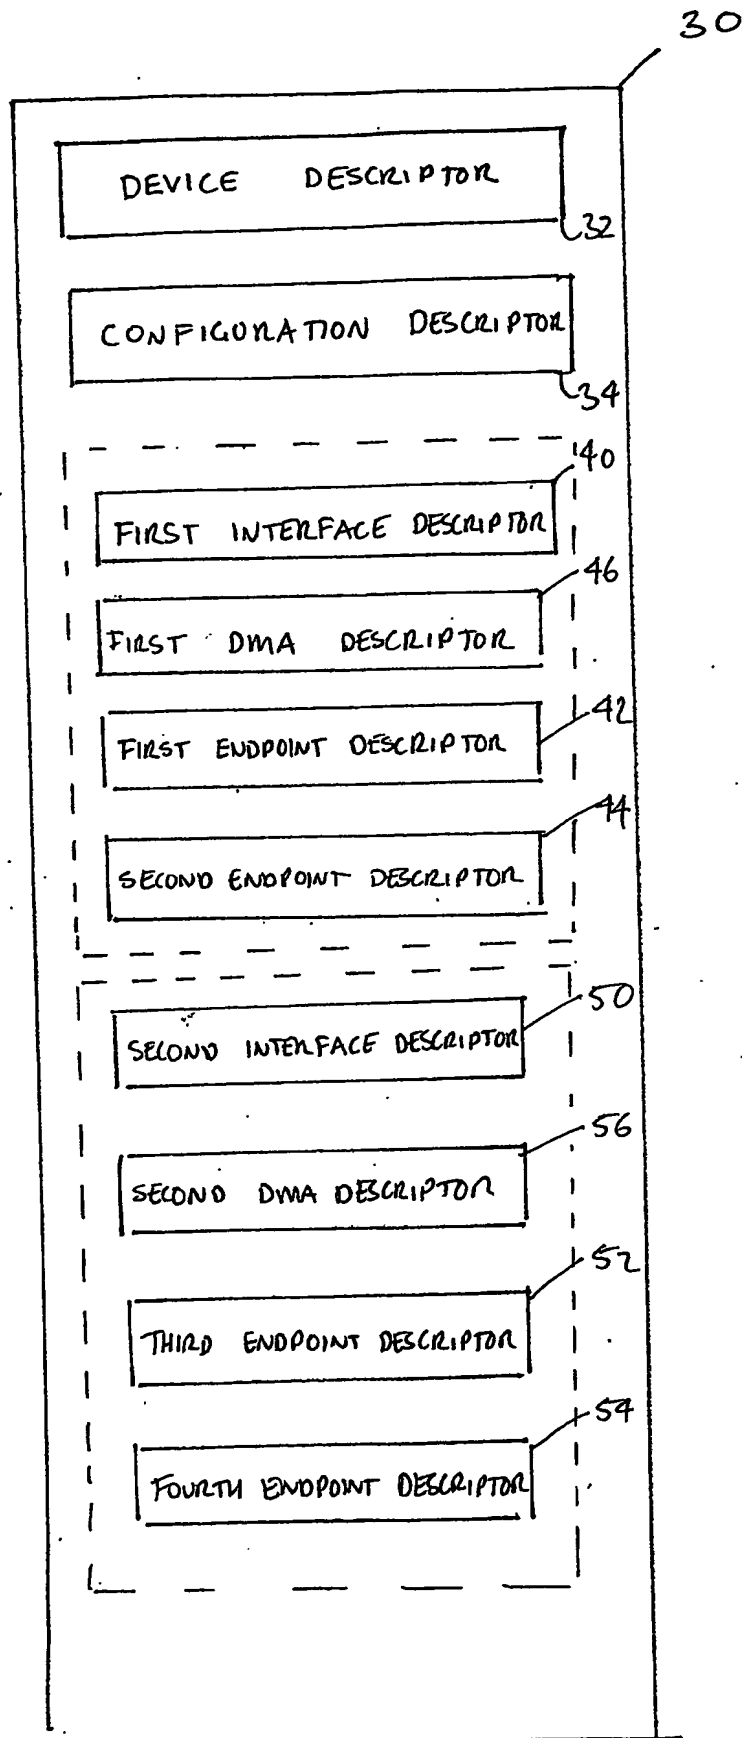 30
DEVICE DESCRIPTOR
32
CONFIGURATION DESCRIPTOR
34
40
FIRST INTERFACE DESCRIPTOR
46
FIRST DMA DESCRIPTOR
42
FIRST ENDPOINT DESCRIPTOR
44
SECOND ENDPOINT DESCRIPTOR
50
SECOND INTERFACE DESCRIPTOR
56
SECOND DMA DESCRIPTOR
52
THIRD ENDPOINT DESCRIPTOR
54
FOURTH ENDPOINT DESCRIPTOR